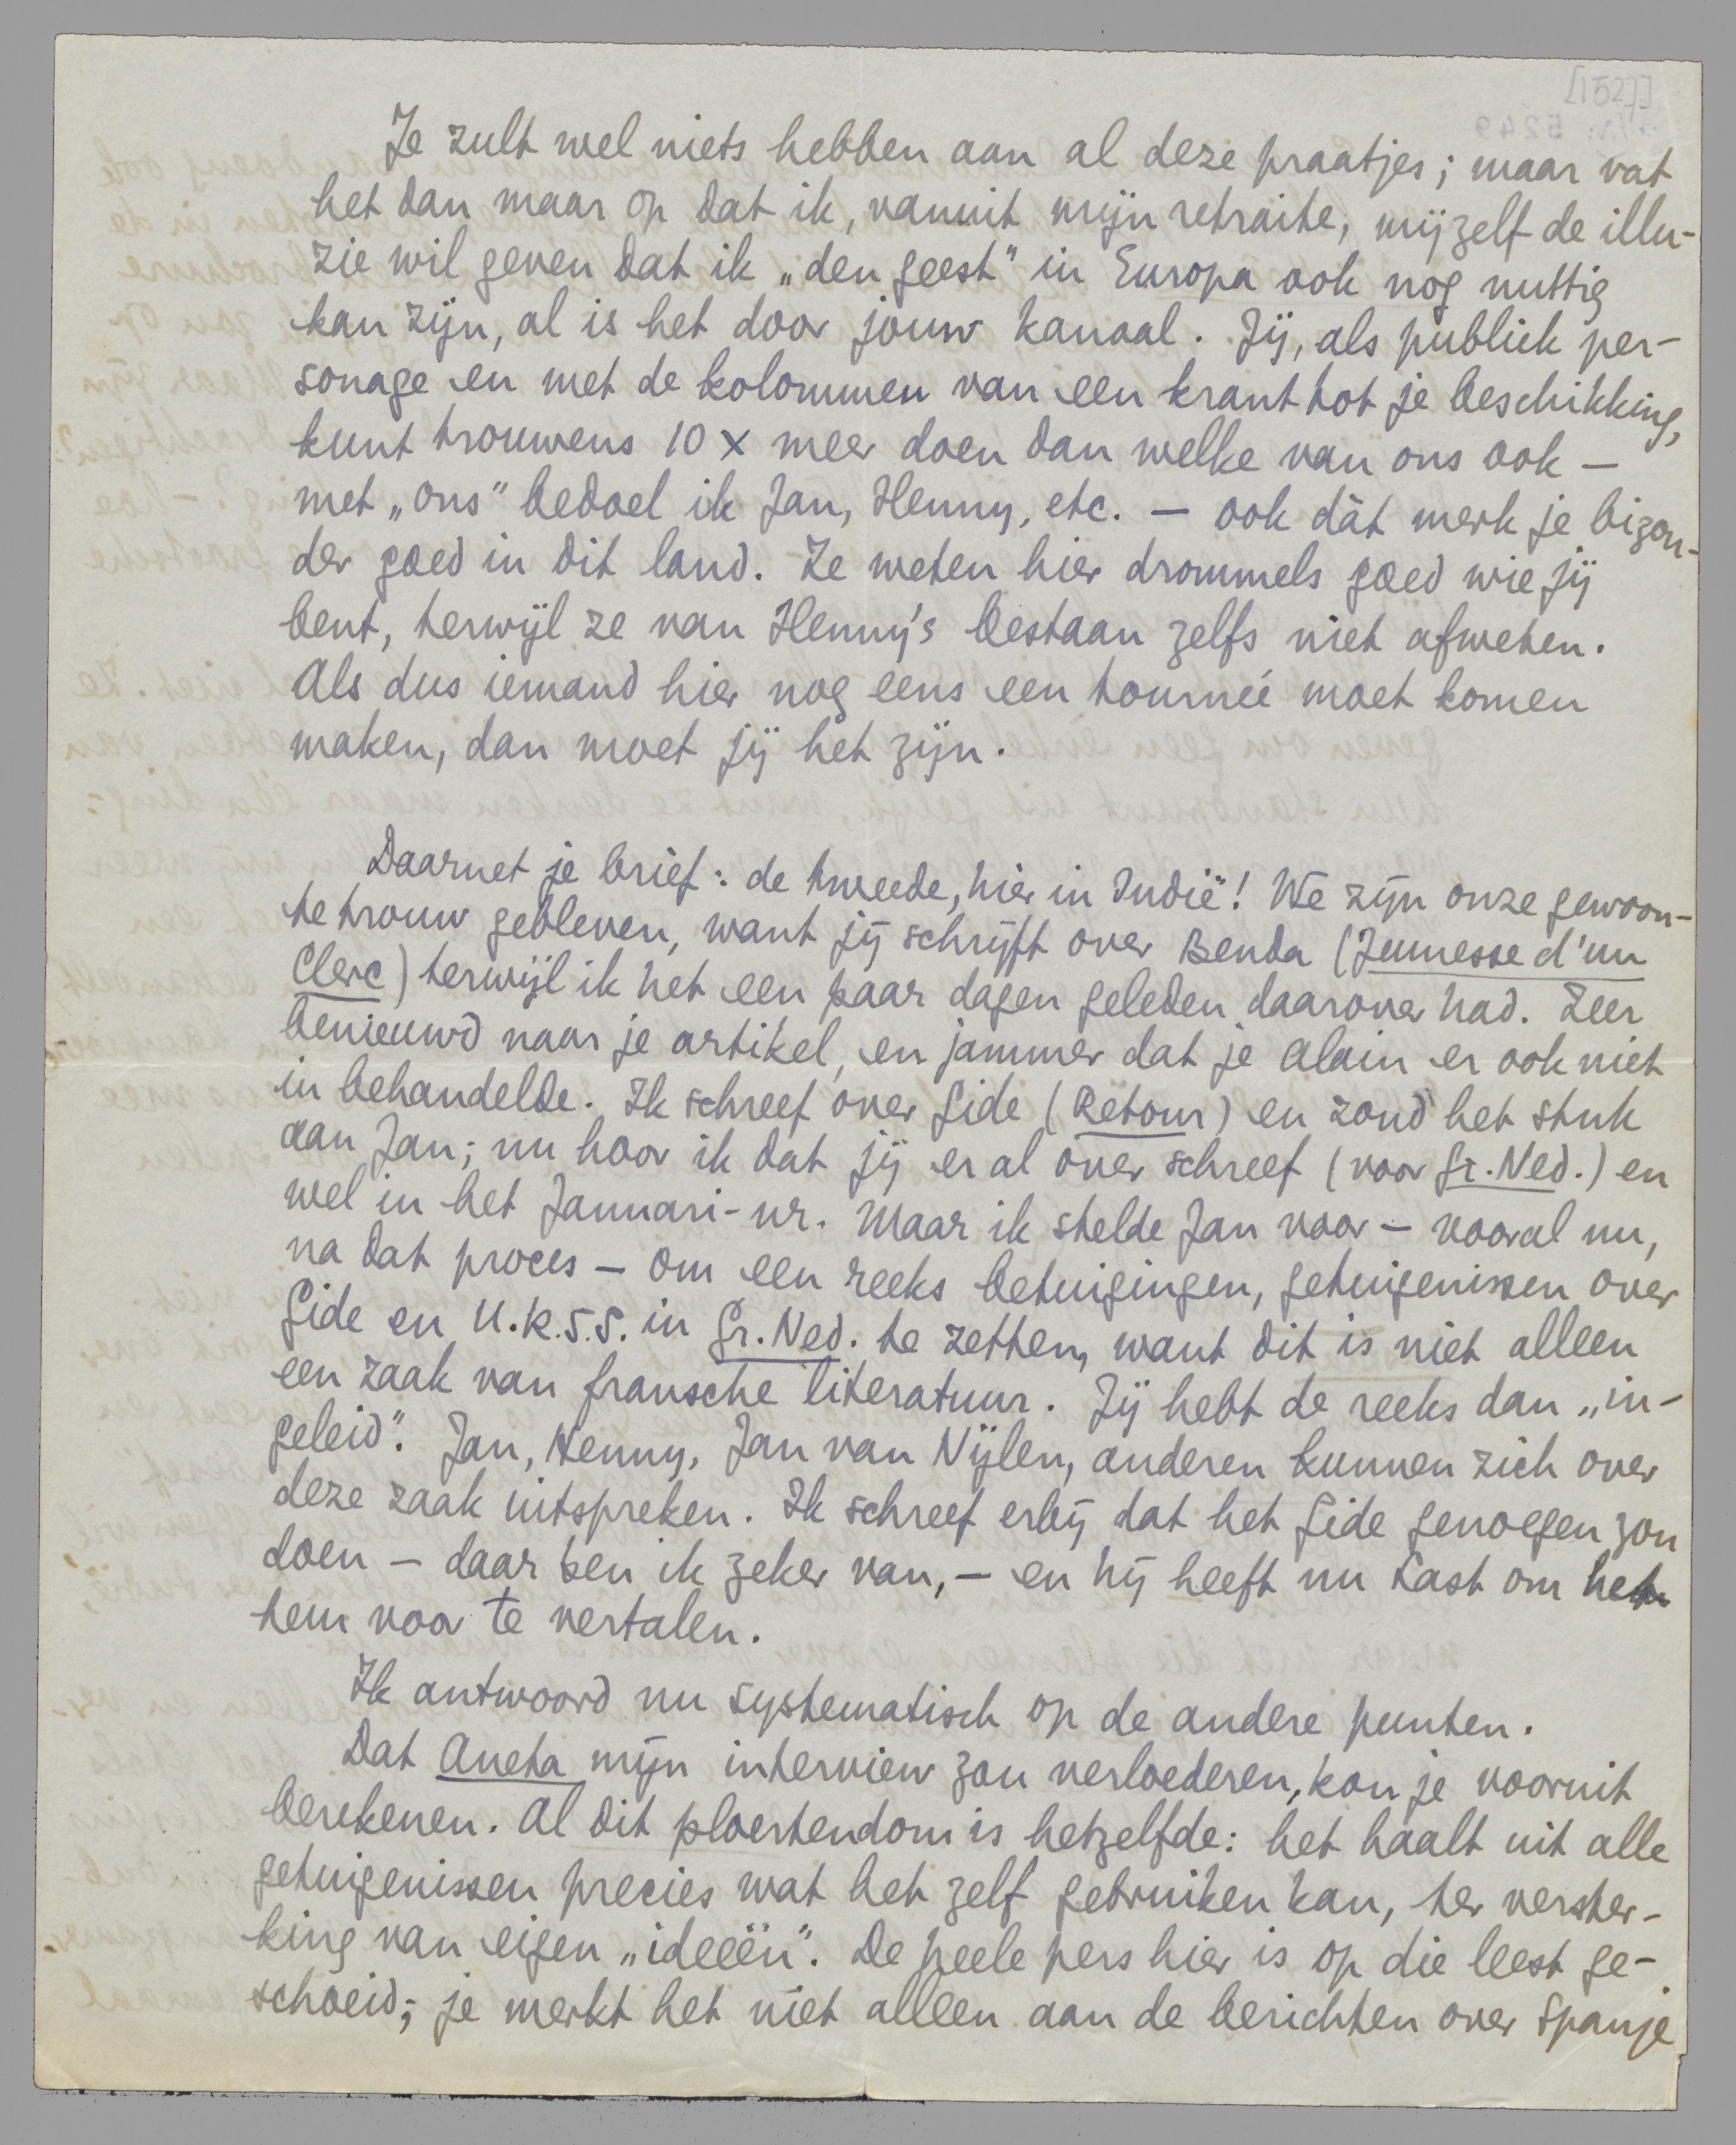 [1527]
Je zult wel niets hebben aan al deze praatjes; maar vat
het dan maar op dat ik, vanuit mijn retraite, mijzelf de illu-
zie wil geven dat ik „den geest" in Europa ook nog nuttig
kan zijn, al is het door jouw kanaal. Jij, als publiek per-
sonage en met de kolommen van een krant tot je beschikking,
kunt trouwens 10 x meer doen dan welke van ons ook —
met „ons" bedoel ik Jan, Henny, etc. — ook dàt merk je bizon-
der goed in dit land. Ze weten hier drommels goed wie jij
bent, terwijl ze van Henny's bestaan zelfs niet afweten.
Als dus iemand hier nog eens een tournée moet komen
maken, dan moet jij het zijn.
Daarnet je brief: de tweede, hier in Indië! We zijn onze gewoon-
te trouw gebleven, want jij schrijft over Benda (Jeunesse d'un
Clerc) terwijl ik het een paar dagen geleden daarover had. Zeer
benieuwd naar je artikel, en jammer dat je Alain er ook niet
in behandelde. Ik schreef over Gide (Retour) en zond het stuk
aan Jan; nu hoor ik dat jij er al over schreef (voor Gr. Ned.) en
wel in het Januari-nr. Maar ik stelde Jan voor — vooral nu,
na dat proces — om een reeks betuigingen, getuigenissen over
Gide en U.R.S.S. in Gr. Ned. te zetten, want dit is niet alleen
een zaak van fransche literatuur. Jij hebt de reeks dan „in-
geleid". Jan, Henny, Jan van Nijlen, anderen kunnen zich over
deze zaak uitspreken. Ik schreef erbij dat het Gide genoegen zou
doen — daar ben ik zeker van, — en hij heeft nu Last om het
hem voor te vertalen.
Ik antwoord nu systematisch op de andere punten.
Dat Aneta mijn interview zou verloederen, kon je vooruit
berekenen. Al dit ploertendom is hetzelfde: het haalt uit alle
getuigenissen precies wat het zelf gebruiken kan, ter verster-
king van eigen „ideeën". De heele pers hier is op die leest ge-
schoeid; je merkt het niet alleen aan de berichten over Spanje